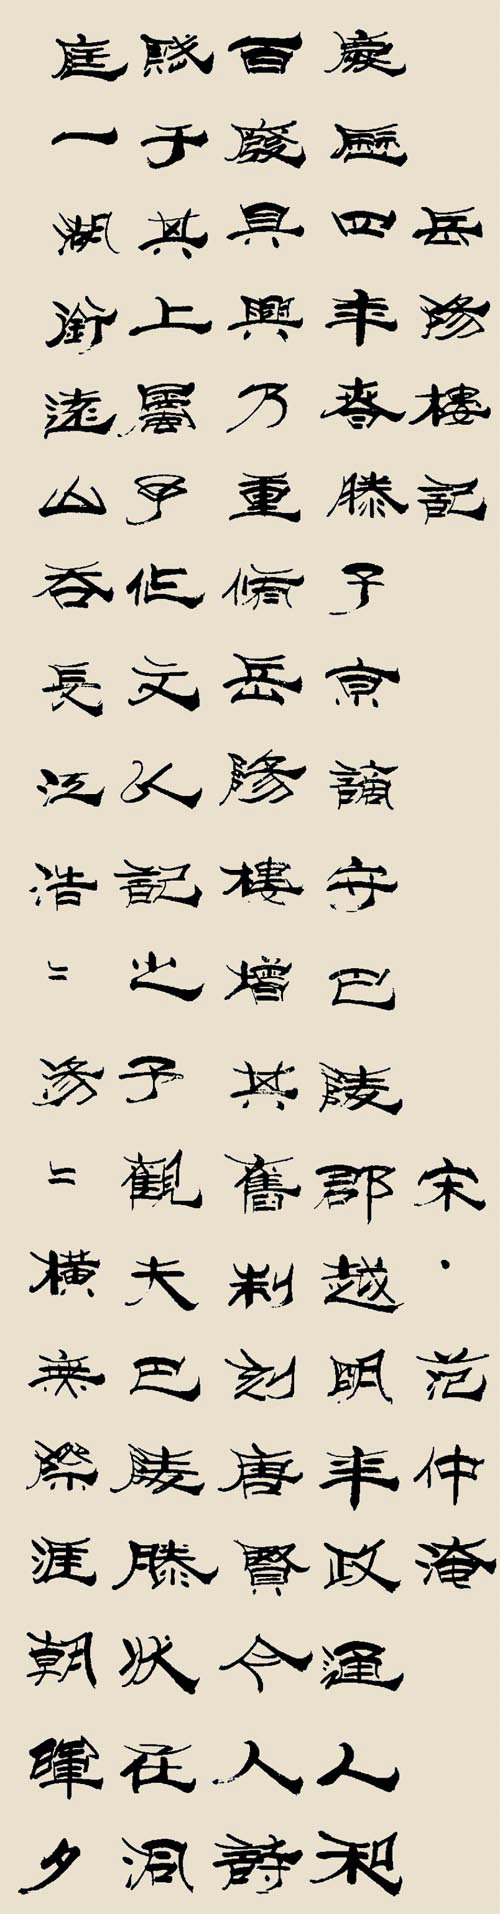 岳陽樓記 宋·范仲淹
慶曆四年春滕子京謫守巴陵郡越明年政通人和
百廢具興乃重脩岳陽樓增其舊制刻唐賢今人詩
賦于其上屬予作文以記之予觀夫巴陵勝狀在洞
庭一湖銜遠山吞長江浩〻湯〻橫無際涯朝暉夕